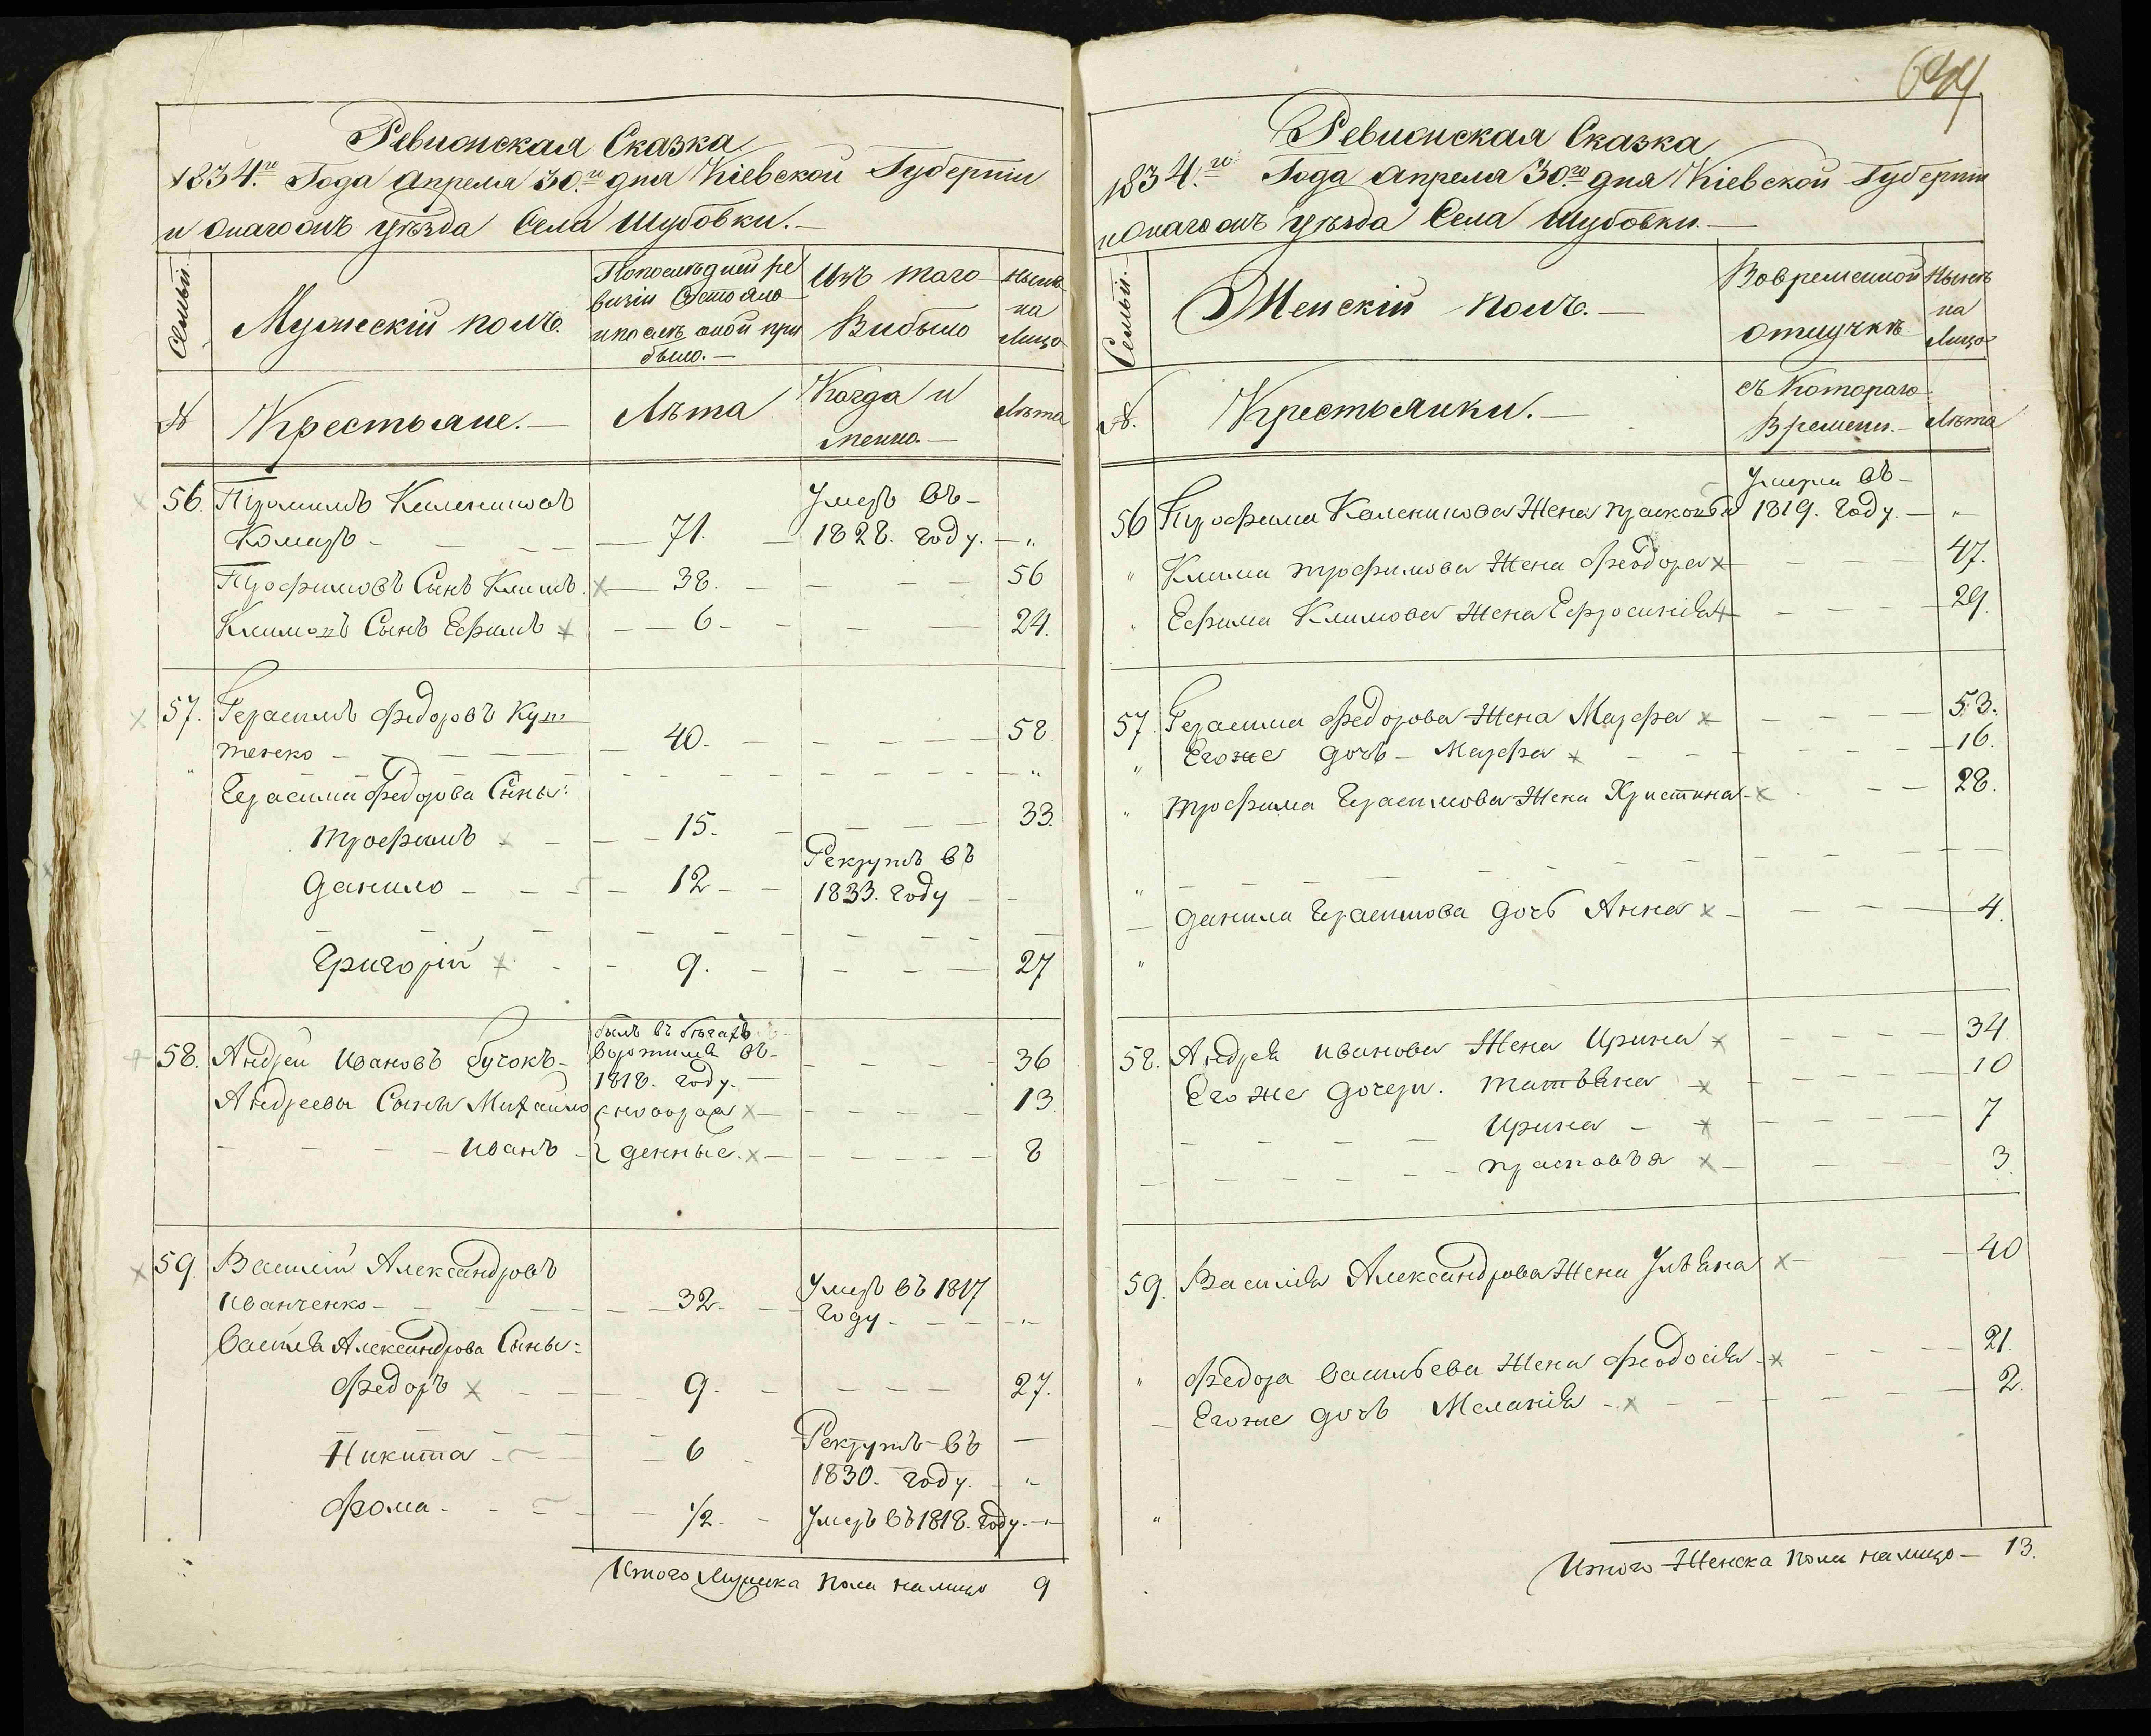 Ревизская Сказка
1834.го Года Апреля 30.го дня Кіевской Губерніи
и Онагожъ уѣзда Села Шубовки.—
Семьи.
Мужескій полъ.
Попослѣдней ре
визіи Состояло
и послѣ оной при
было.—
Изъ того
Выбыло
Нынѣ
на
Лицо
№
Крестьяне.—
Лѣта
Когда и
Лѣта
56. Каленик
71.
Умеръ въ
1828. году. — „
Трофимовъ Сынъ Климъ. 38. — 56
Климовъ Сынъ Ефимъ — 6 — 24.
57. Герасимъ Федоровъ Куш
тенко — 40. — 58
Герасима Федорова Сыны:
Трофимъ — 15. — 33.
Данило — 12 —
Рекрутъ въ
1833. году
Григорій — 9. — 27
58. Андрей Ивановъ Бучокъ —
былъ въ бѣгахъ
въ
1818. году.
36
Андреевы Сыны Михайло
новорож
13.
— Иванъ
денные. — 8
59. Василій Александровъ
Иванченко — 32. —
Умеръ въ 1817
году — „
Василія Александрова Сыны:
Федоръ — 9. — 27.
Никита — 6
Рекрутъ въ
1830. году. — „
Фома — 1/2. — Умеръ въ 1818. году. — „
Итого Мужеска пола налицо 9
644
Ревизская Сказка
1834.го Года Апреля 30.го дня Кіевской Губерніи
и Онагожъ уѣзда Села Шубовки.—
Семьи.—
Женскій полъ.—
Вовременной
отлучкѣ
Нынѣ
на
Лицо
№.
Крестьянки.—
съ Котораго
Времени.—
Лѣта
56 Трофима Каленикова Жена
1819. году. — „
„ Клима Трофимова Жена Феодора — 47.
„ Ефима Климова Жена Ефросинія — 29.
57. Герасима Федорова Жена Марфа — 53.
„ Егоже дочь — Марфа — 16.
„ Трофима Герасимова Жена Христина — 28.
„
— Данила Герасимова дочь Анна — 4.
„
58. Андрея Иванова Жена Ирина — 34.
Егоже дочери. Татьяна — 10
Ирина — 7
— Прасковья — 3.
59. Василія Александрова Жена Ульяна — 40
„ Федора Васильева Жена Феодосія — 21.
— Егоже дочь Меланія — 2.
„
Итого Женска пола налицо — 13.